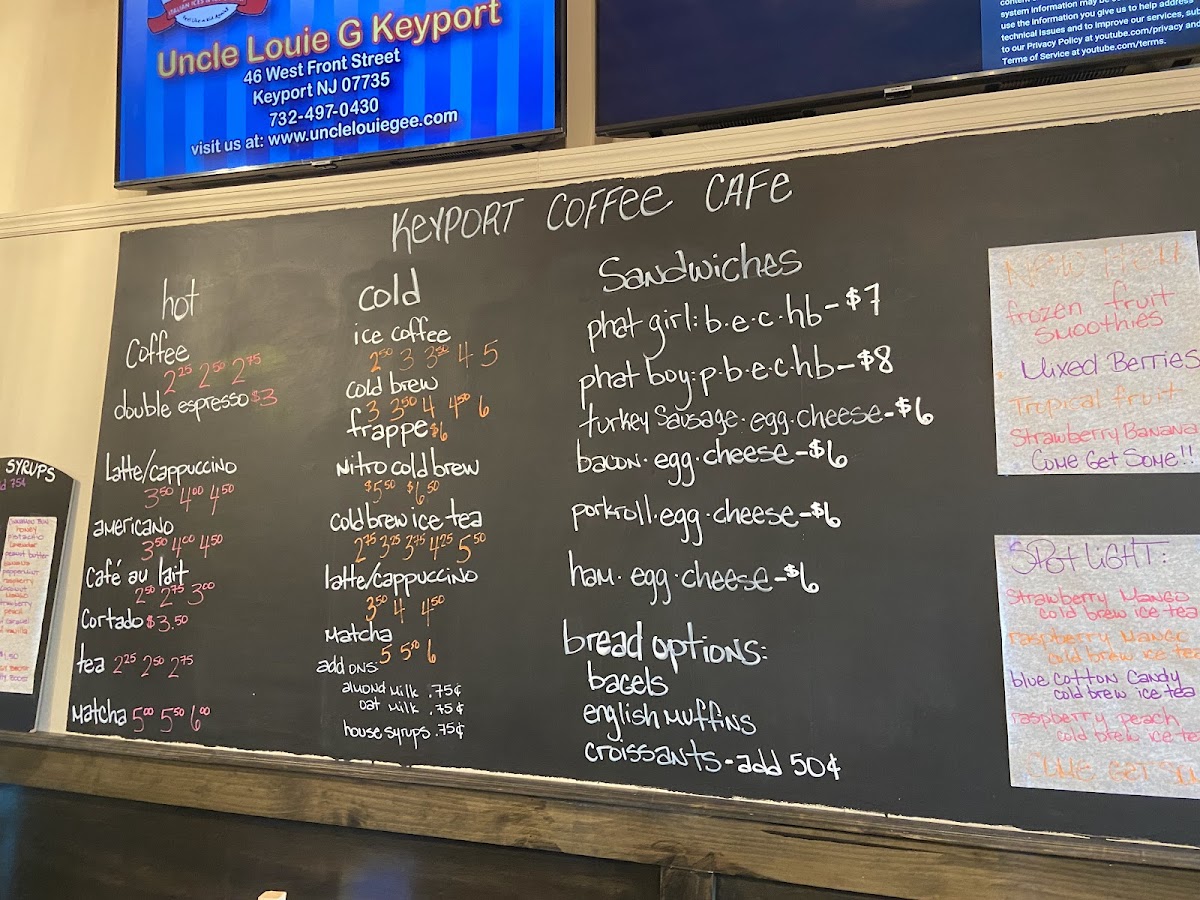 Uncle Louie G Keyport
46 West Front Street
Keyport NJ 07735
732-497-0430
visit us at: www.unclelouiegee.com
system information may be
use the information you give us to help address
technical issues and to improve our services, sub
to our Privacy Policy at youtube.com/privacy and
Terms of Service at youtube.com/terms.
KEYPORT COFFEE CAFE
hot
Coffee
2.25 2.50 2.75
double espresso $3
Latte/cappuccino
3.50 4.00 4.50
americano
3.50 4.00 4.50
Café au lait
2.50 2.75 3.00
Cortado $3.50
tea 2.25 2.50 2.75
Matcha 5.00 5.50 6.00
cold
ice coffee
2.50 3 3.50 4 5
cold brew
3 3.50 4 4.50 6
frappe $6
Nitro cold brew
$5.50 $6.50
cold brew ice tea
2.75 3.25 3.75 4.25 5.50
latte/cappuccino
3.50 4 4.50
Matcha
5 5.50 6
add ons:
almond milk .75¢
oat milk .75¢
house syrups .75¢
Sandwiches
phat girl: b.e.c.hb-$7
phat boy: p.b.e.c.hb-$8
turkey sausage.egg.cheese-$6
bacon.egg.cheese-$6
porkroll.egg.cheese-$6
ham.egg.cheese-$6
bread options:
bagels
english muffins
croissants-add 50¢
frozen fruit
smoothies
Mixed Berries
Tropical fruit
Strawberry Banana
Come Get Some!!
SPOTLIGHT:
Strawberry Mango
cold brew ice tea
raspberry Mango
cold brew ice tea
blue Cotton Candy
cold brew ice tea
raspberry peach
cold brew ice tea
COME GET
SYRUPS
75¢
honey
pistachio
peanut butter